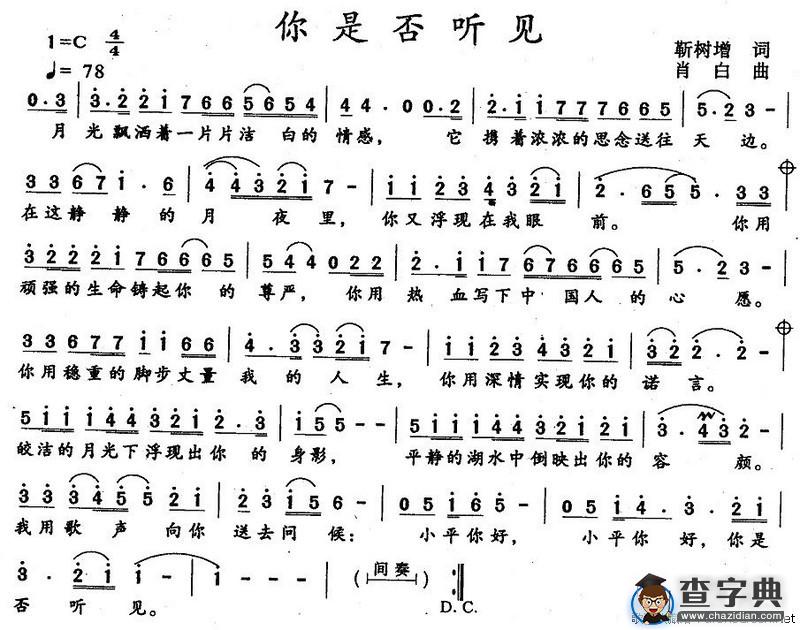 你是否听见
1=C 4/4
♩=78
靳树增 词
肖白 曲
0.3 | 3.221 7665654 | 44.0 00.2 | 2.11777665 | 5.23- |
月光飘洒着一片片洁白的情感，它携着浓浓的思念送往天边。
33671.6 | 443217- | 11234321 | 2.655.33
在这静静的月夜里，你又浮现在我眼前。你用
3222176665 | 544022 | 2.117676665 | 5.23- |
顽强的生命铸起你的尊严，你用热血写下中国人的心愿。
336771166 | 4.33217- | 11234321 | 322.2- |
你用稳重的脚步丈量我的人生，你用深情实现你的诺言。
511144321 2.3 | 155- | 5114432121 | 3.432- |
皎洁的月光下浮现出你的身影，平静的湖水中倒映出你的容颜。
33345521 | 2315- | 05165- | 0514.3.21 |
我用歌声向你送去问候：小平你好，小平你好，你是
3.211- | 1--- | (间奏) :||
否听见。
D.C.
查字典
www.chazidian.com